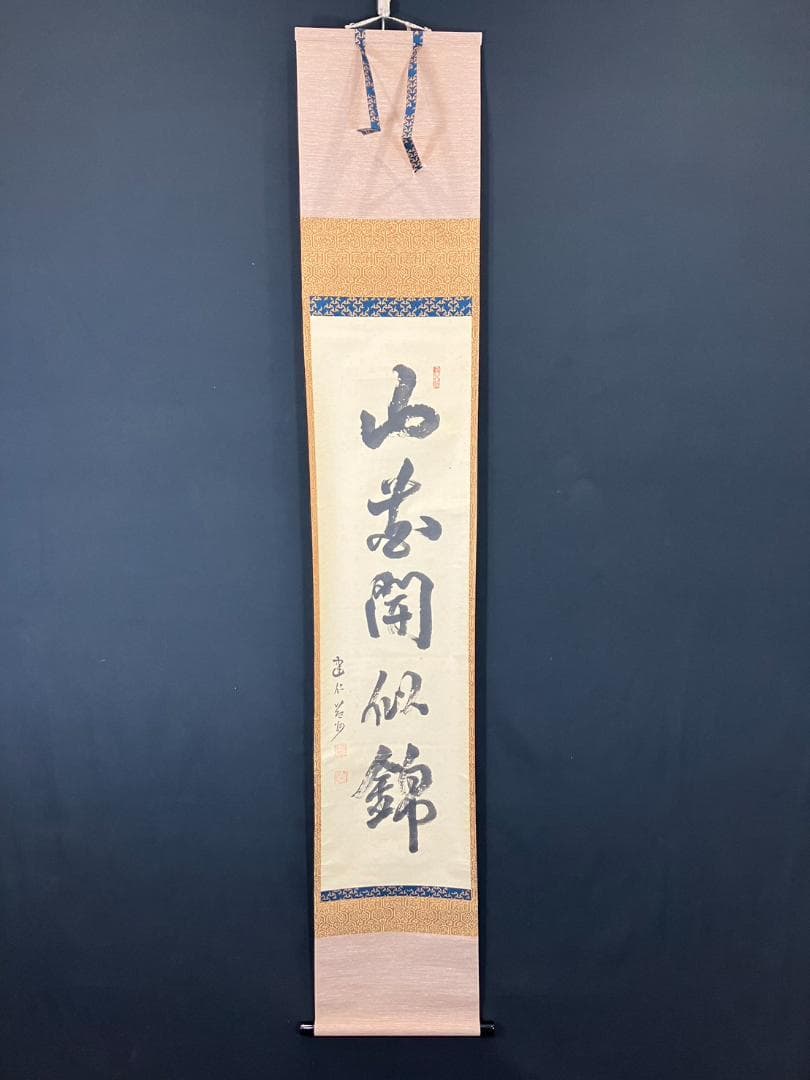 山花開似錦
建仁